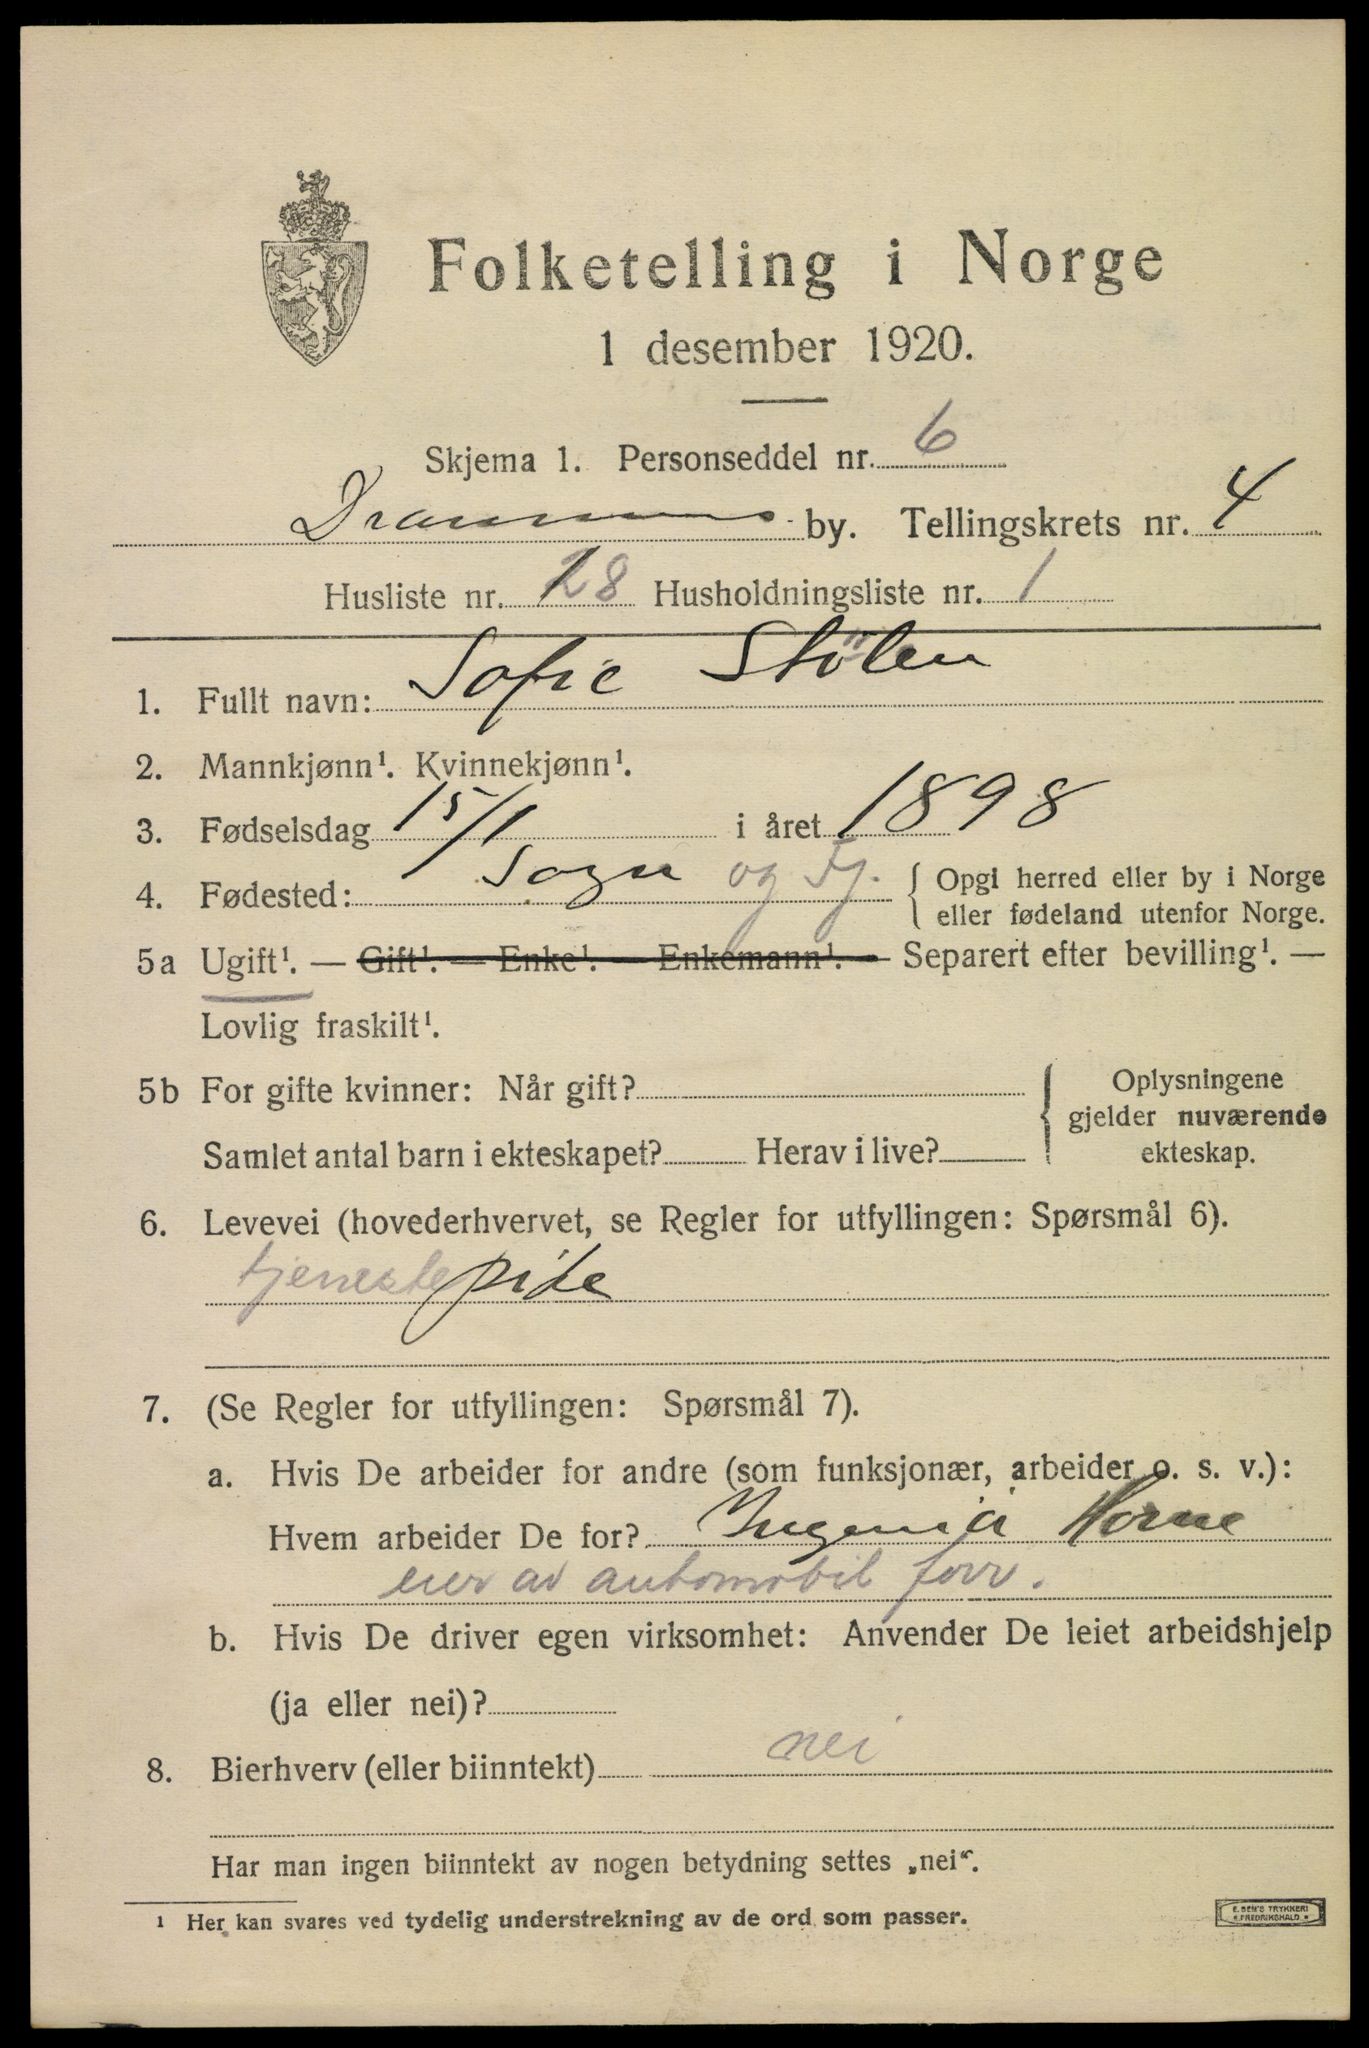 Folketelling i Norge
1 desember 1920.
Skjema 1. Personseddel nr. 6
Drammens by. Tellingskrets nr. 4
Husliste nr. 28 Husholdningsliste nr. 1
1. Fullt navn: Sofie Stölen
2. Mannkjønn¹. Kvinnekjønn¹.
3. Fødselsdag 15/1 i året 1898
4. Fødested: Sogn og Fj. { Opgi herred eller by i Norge
eller fødeland utenfor Norge.
5a Ugift¹. — Gift¹. — Enke¹. — Enkemann¹. — Separert efter bevilling¹. —
Lovlig fraskilt¹.
5b For gifte kvinner: Når gift?
Samlet antal barn i ekteskapet? Herav i live?
{ Oplysningene
gjelder nuværende
ekteskap.
6. Levevei (hovederhvervet, se Regler for utfyllingen: Spørsmål 6).
tjenestepike
7. (Se Regler for utfyllingen: Spørsmål 7).
a. Hvis De arbeider for andre (som funksjonær, arbeider o. s. v.):
Hvem arbeider De for? Horne
eier av automobil forr.
b. Hvis De driver egen virksomhet: Anvender De leiet arbeidshjelp
(ja eller nei)?
8. Bierhverv (eller biinntekt) nei
Har man ingen biinntekt av nogen betydning settes „nei“.
¹ Her kan svares ved tydelig understrekning av de ord som passer.
E. SEM'S TRYKKERI
FREDRIKSHALD